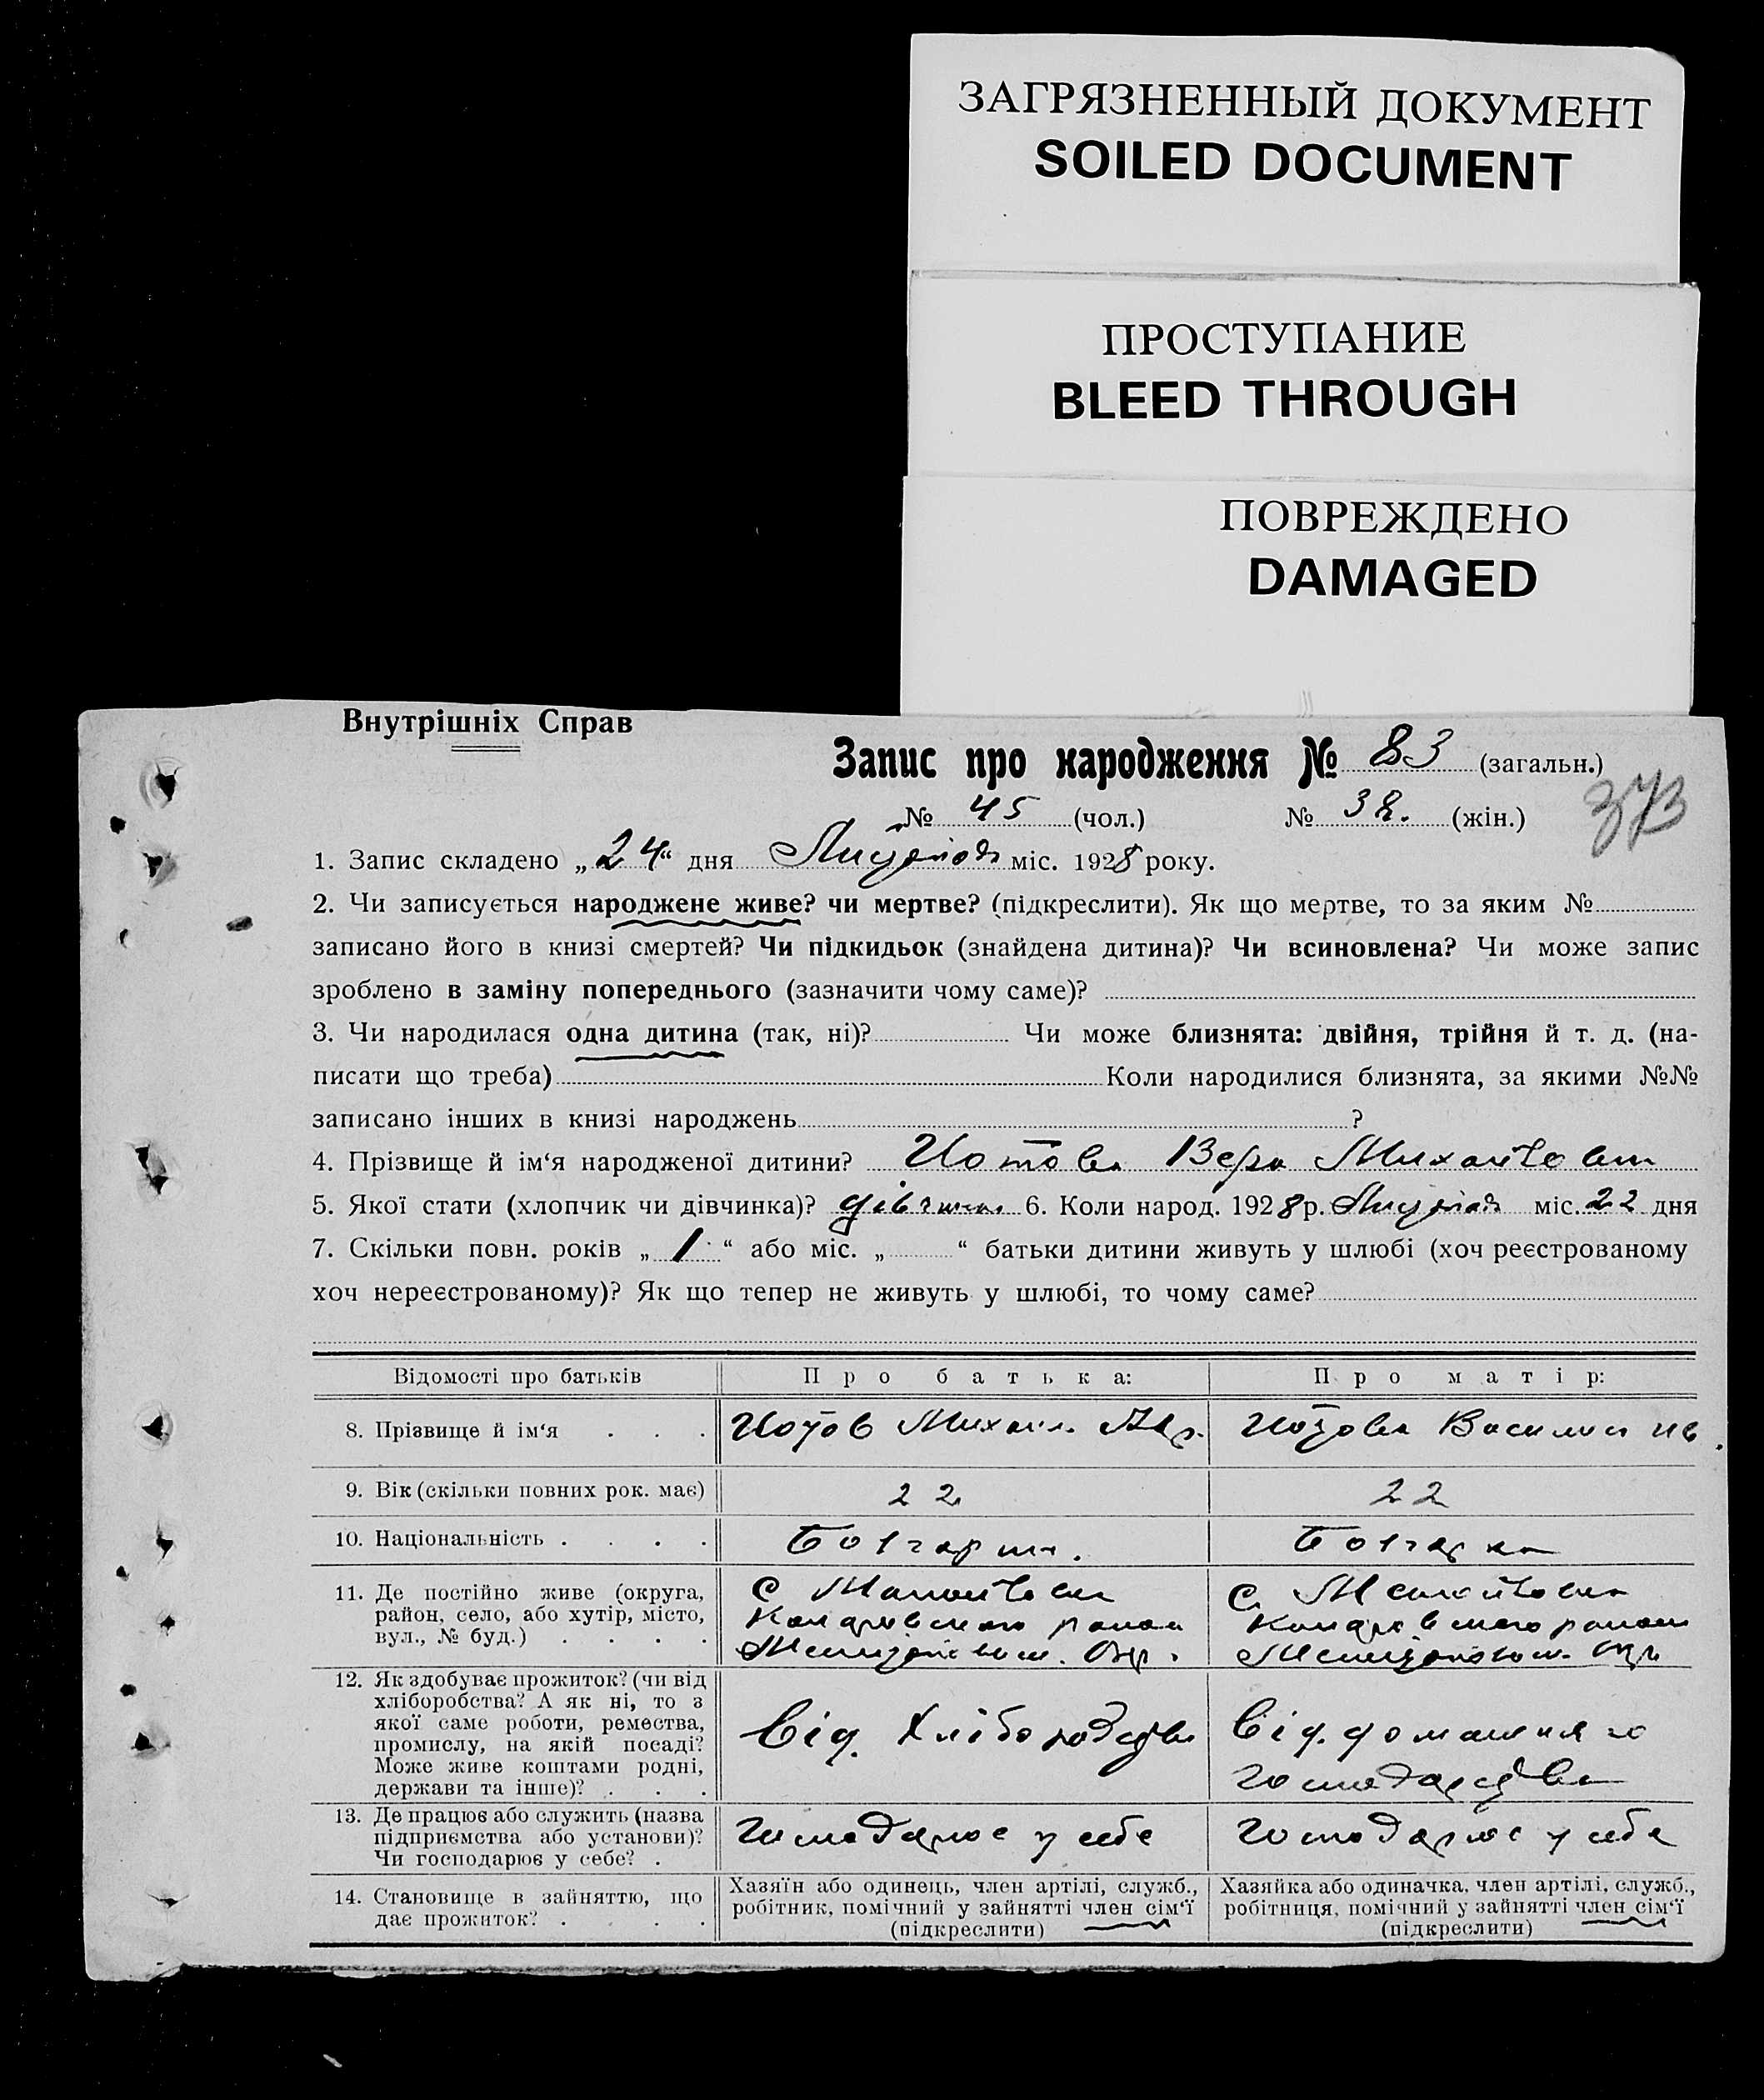 ЗАГРЯЗНЕННЫЙ ДОКУМЕНТ
SOILED DOCUMENT
ПРОСТУПАНИЕ
BLEED THROUGH
ПОВРЕЖДЕНО
DAMAGED
Внутрішніх Справ
Запис про народження № 83 (загальн.)
№ 45 (чол.) № 38. (жін.)
373
1. Запис складено „24“ дня Листопада міс. 1928 року.
2. Чи записується народжене живе? чи мертве? (підкреслити). Як що мертве, то за яким №
записано його в книзі смертей? Чи підкидьок (знайдена дитина)? Чи всиновлена? Чи може запис
зроблено в заміну попереднього (зазначити чому саме)?
3. Чи народилася одна дитина (так, ні)? Чи може близнята: двійня, трійня й т. д. (на-
писати що треба) Коли народилися близнята, за якими №№
записано інших в книзі народжень ?
4. Прізвище й ім‘я народженої дитини? Иотова Вера Михайловна
5. Якої стати (хлопчик чи дівчинка)? дівчина 6. Коли народ. 1928 р. Листопад міс. 22 дня
7. Скільки повн. років „ 1 “ або міс. „ “ батьки дитини живуть у шлюбі (хоч реєстрованому
хоч нереєстрованому)? Як що тепер не живуть у шлюбі, то чому саме?
Відомості про батьків Про батька: Про матір:
8. Прізвище й ім‘я . . . Иотов Михаил Иотова Василиса Ив.
9. Вік (скільки повних рок. має) 22 22
10. Національність . . . . Болгарин. Болгарка
11. Де постійно живе (округа, район, село, або хутір, місто, вул., № буд.) . . . .
С
района
Мелитопольськ. Окр.
С.
района
Мелитопольськ. Окр.
12. Як здобуває прожиток? (чи від хліборобства? А як ні, то з якої саме роботи, ремества, промислу, на якій посаді? Може живе коштами родні, держави та інше)? . . .
Від. Хліборобства
Від. домашняго
господарства
13. Де працює або служить (назва підприємства або установи)? Чи господарює у себе? .
Господарює у себе
Господарює у себе
14. Становище в зайняттю, що дає прожиток? . . .
Хазяїн або одинець, член артілі, служб., робітник, помічний у зайнятті член сім‘ї (підкреслити)
Хазяйка або одиначка, член артілі, служб., робітниця, помічний у зайнятті член сім‘ї (підкреслити)